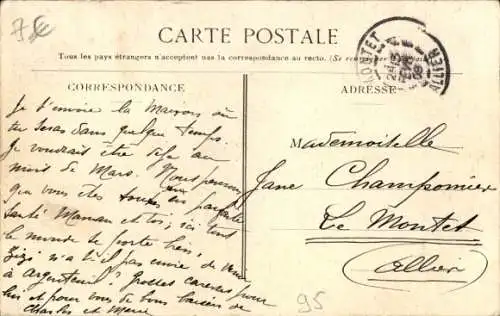 7€
CARTE POSTALE
Tous les pays étrangers n'acceptent pas la correspondance au recto. (Se renseigner
CORRESPONDANCE
ADRESSE
MONTET
ALLIER
Je t'envoie la Maison où
tu seras dans quelque temps.
Je voudrait être déja au
mois de Mars. Nous
que vous êtes tous en parfaite
santé Maman et toi, ici tout
le monde se porte bien, de
Gigi n'a t'il pas envie de venir
à argenteuil? Grosses caresses pour
lui et pour vous de bons baisers de
Charles et Marie
Mademoiselle
Jane Champomier
Le Montet
(Allier)
95